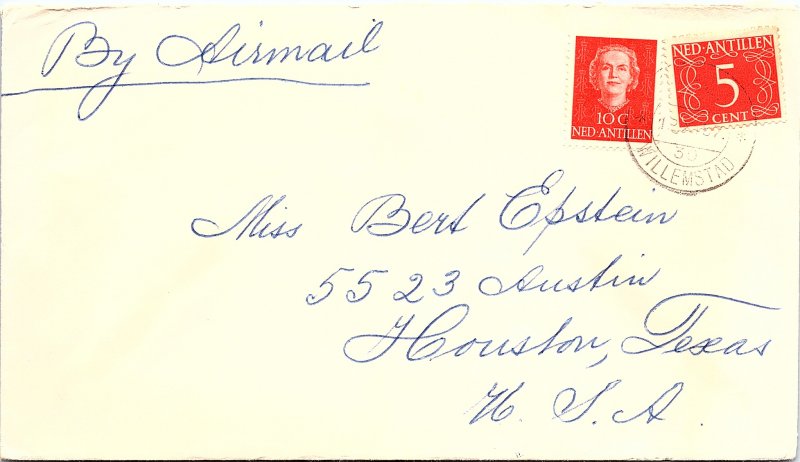 By Airmail
10 C
NED·ANTILLEN
NED·ANTILLEN
5
CENT
WILLEMSTAD
Miss Bert Epstein
5523 Austin
Houston, Texas
U. S. A.